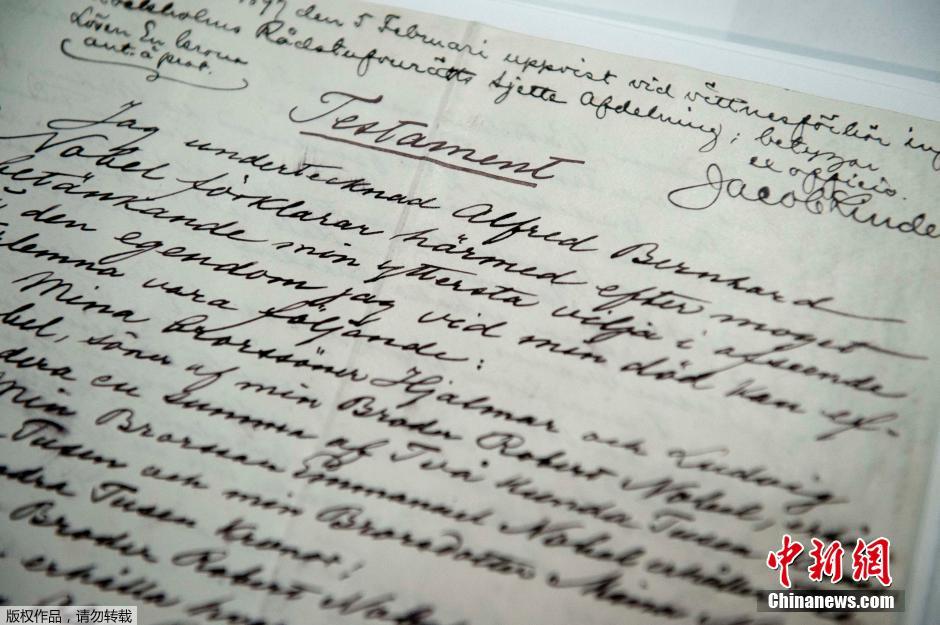 1897 den 5 Februari uppvist vid vittnesförhör in
Rådstufvurätts Sjette Afdelning; betygar
Lösen En krona
ex officio.
Jacob Linde
Testament
Jag undertecknad Alfred Bernhard
Nobel förklarar härmed efter moget
betänkande min yttersta vilja i afseende
den egendom jag vid min död kan ef-
terlemna vara följande:
Mina Brorssöner Hjalmar och Ludvig
bel, söner af min Broder Robert Nobel, er
en Summa af Två Hundra Tusen
Min Brorson Emmanuel Nobel erhåller
Tusen och min Brorsdotter Mina
dra Tusen Kronor;
Broder Robert Nobel
erhålla
版权作品，请勿转载
中新网
Chinanews.com